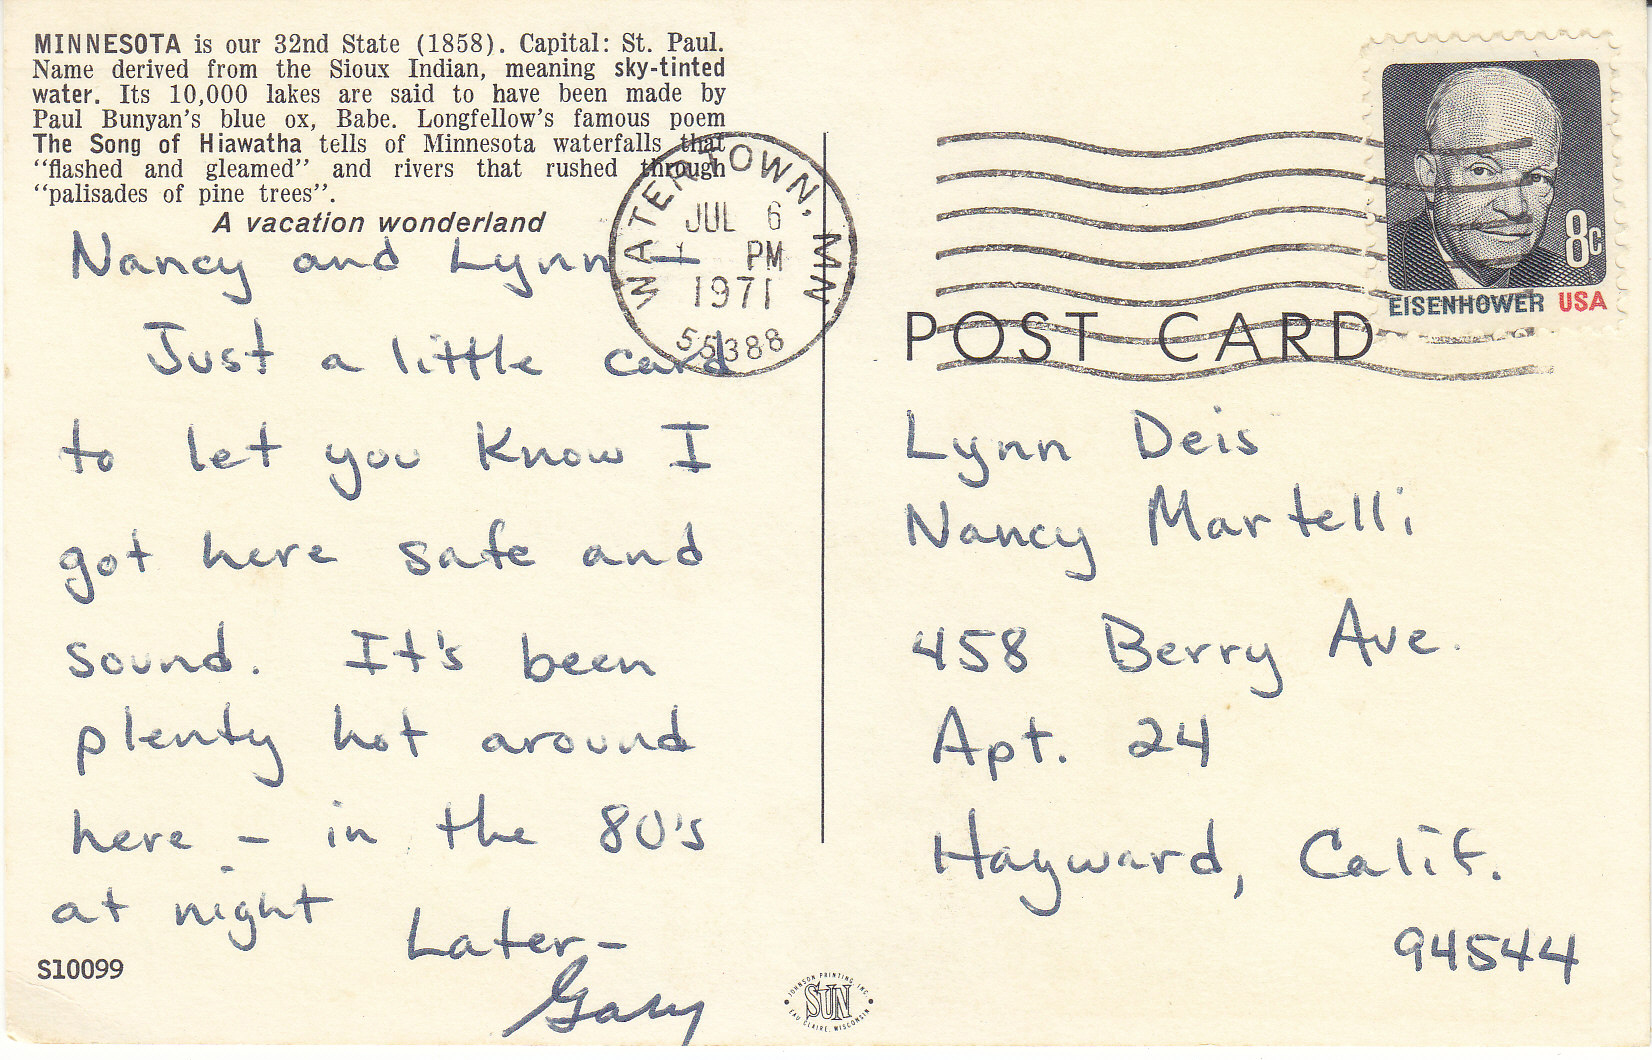 MINNESOTA is our 32nd State (1858). Capital: St. Paul.
Name derived from the Sioux Indian, meaning sky-tinted
water. Its 10,000 lakes are said to have been made by
Paul Bunyan's blue ox, Babe. Longfellow's famous poem
The Song of Hiawatha tells of Minnesota waterfalls that
“flashed and gleamed” and rivers that rushed through
“palisades of pine trees”.
A vacation wonderland
Nancy and Lynn
Just a little card
to let you know I
got here safe and
sound. It's been
plenty hot around
here - in the 80's
at night
Later-
Gary
S10099
WATERTOWN, MN
JUL 6
PM
1971
55388
8c
EISENHOWER USA
POST CARD
Lynn Deis
Nancy Martelli
458 Berry Ave.
Apt. 24
Hayward, Calif.
94544
JOHNSON PRINTING INC.
SUN
EAU CLAIRE, WISCONSIN